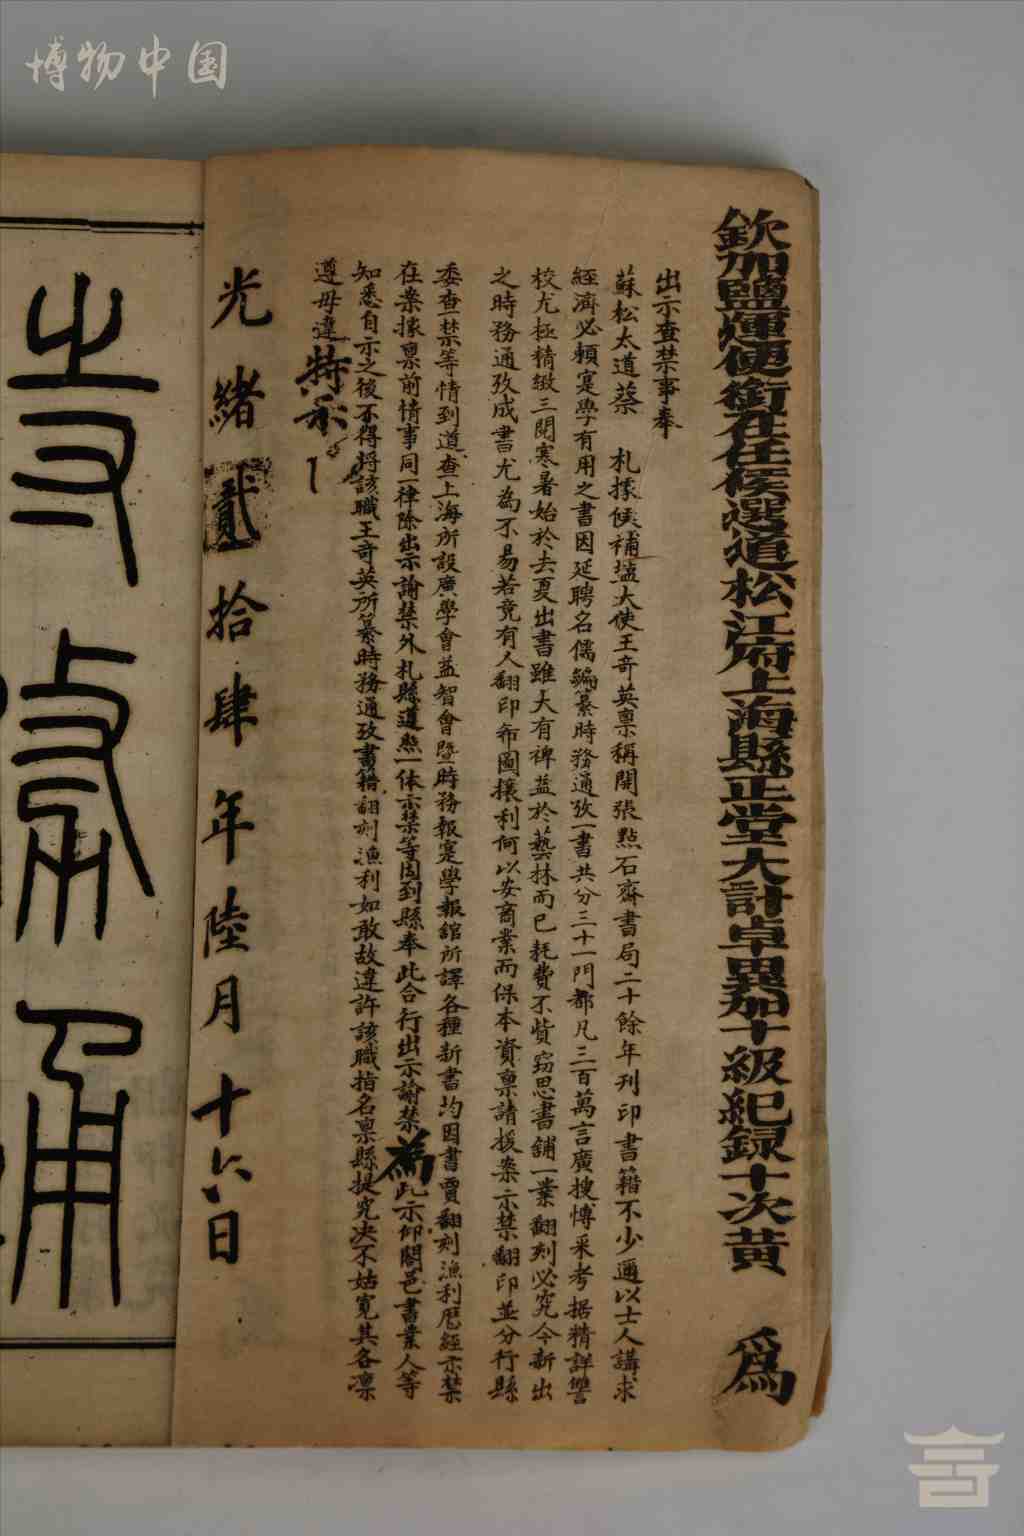 博物中国
欽加鹽運使銜在任候選道松江府上海縣正堂大計卓異加十級紀録十次黄 爲
出示查禁事奉
蘇松太道蔡 札據候補塩大使王奇英禀稱開張點石齋書局二十餘年刊印書籍不少邇以士人講求
經濟必賴寔學有用之書因延聘名儒編纂時務通攷一書共分三十一門都凡三百萬言廣搜愽采考据精詳讐
校尤極精緻三閱寒暑始於去夏出書雖大有裨益於藝林而已耗費不貲窃思書舖一業翻刻必究今新出
之時務通攷成書尤為不易若竟有人翻印希圖攘利何以安商業而保本資禀請援案示禁翻印並分行縣
委查禁等情到道查上海所設廣學會益智會暨時務報寔學報舘所譯各種新書均因書賈翻刻漁利歷經示禁
在案據禀前情事同一律除出示諭禁外札縣遵照一体示禁等因到縣奉此合行出示諭禁為此示仰閤邑書業人等
知悉自示之後不得将該職王奇英所纂時務通攷書籍翻刻漁利如敢故違許該職指名禀縣提究决不姑寬其各凛
遵毋違特示
光緒貳拾肆年陸月十六日
時務通